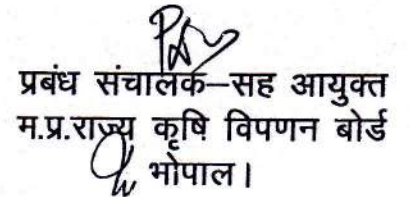 प्रबंध संचालक–सह आयुक्त
म.प्र.राज्य कृषि विपणन बोर्ड
भोपाल।